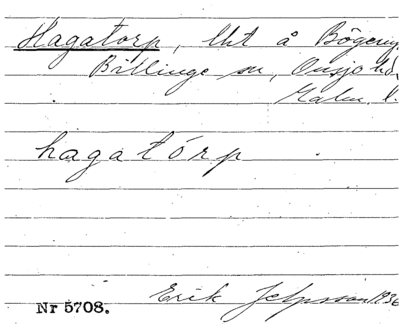 Hagatorp, lht å Bögeryd
Billinge sn, Onsjö hd,
Malm. l.
hagatórp
Nr 5708.
Erik Jeppsson 1936